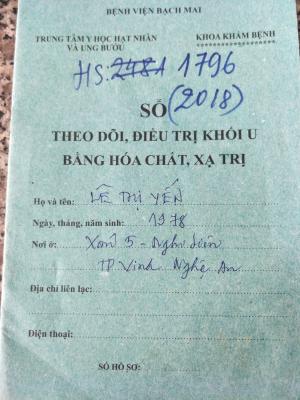 BỆNH VIỆN BẠCH MAI
TRUNG TÂM Y HỌC HẠT NHÂN
VÀ UNG BƯỚU
KHOA KHÁM BỆNH
**************
HS: 248A 1796
(2018)
SỔ
THEO DÕI, ĐIỀU TRỊ KHỐI U
BẰNG HÓA CHẤT, XẠ TRỊ
Họ và tên: LÊ THỊ YẾN
Ngày, tháng, năm sinh: 1978
Nơi ở: Xóm 5 - Nghi Liên
TP Vinh Nghệ An
Địa chỉ liên lạc:
Điện thoại:
SỐ HỒ SƠ: